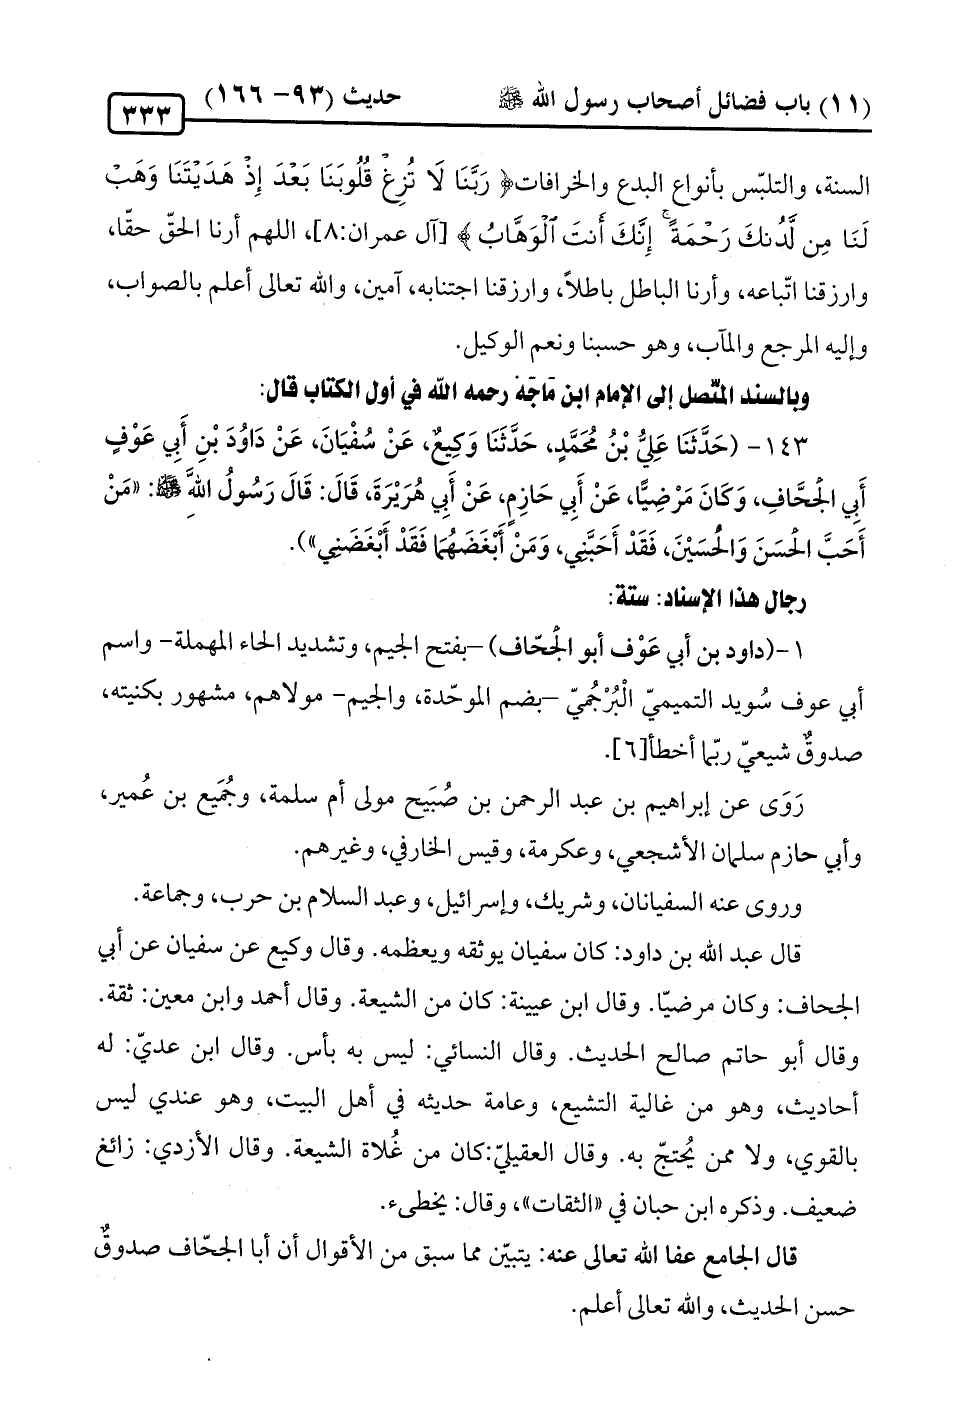 (١١) باب فضائل أصحاب رسول الله ﷺ حديث (٩٣- ١٦٦) ٣٣٣
السنة، والتلبّس بأنواع البدع والخرافات﴿ رَبَّنَا لَا تُزِغْ قُلُوبَنَا بَعْدَ إِذْ هَدَيْتَنَا وَهَبْ
لَنَا مِن لَّدُنكَ رَحْمَةً ۚ إِنَّكَ أَنتَ ٱلْوَهَّابُ ﴾ [آل عمران:٨]، اللهم أرنا الحقّ حقّا،
وارزقنا اتّباعه، وأرنا الباطل باطلاً، وارزقنا اجتنابه، آمين، والله تعالى أعلم بالصواب،
وإليه المرجع والمآب، وهو حسبنا ونعم الوكيل.
وبالسند المتّصل إلى الإمام ابن مَاجَهْ رحمه الله في أول الكتاب قال:
١٤٣- (حَدَّثَنَا عَلِيُّ بْنُ مُحَمَّدٍ، حَدَّثَنَا وَكِيعٌ، عَنْ سُفْيَانَ، عَنْ دَاوُدَ بْنِ أَبِي عَوْفٍ
أَبِي الْجَحَّافِ، وَكَانَ مَرْضِيًّا، عَنْ أَبِي حَازِمٍ، عَنْ أَبِي هُرَيْرَةَ، قَالَ: قَالَ رَسُولُ اللهِ ﷺ: «مَنْ
أَحَبَّ الْحَسَنَ وَالْحُسَيْنَ، فَقَدْ أَحَبَّنِي، وَمَنْ أَبْغَضَهُمَا فَقَدْ أَبْغَضَنِي»).
رجال هذا الإسناد: ستة:
١ -(داود بن أبي عَوْف أبو الْجَحّاف) –بفتح الجيم، وتشديد الحاء المهملة- واسم
أبي عوف سُويد التميميّ الْبُرْجُميّ –بضم الموحّدة، والجيم- مولاهم، مشهور بكنيته،
صدوقٌ شيعيّ ربّما أخطأ[٦].
رَوَى عن إبراهيم بن عبد الرحمن بن صُبَيح مولى أم سلمة، وجُمَيع بن عُمير،
وأبي حازم سلمان الأشجعي، وعكرمة، وقيس الخارفي، وغيرهم.
وروى عنه السفيانان، وشريك، وإسرائيل، وعبد السلام بن حرب، وجماعة.
قال عبد الله بن داود: كان سفيان يوثقه ويعظمه. وقال وكيع عن سفيان عن أبي
الجحاف: وكان مرضيّا. وقال ابن عيينة: كان من الشيعة. وقال أحمد وابن معين: ثقة.
وقال أبو حاتم صالح الحديث. وقال النسائي: ليس به بأس. وقال ابن عديّ: له
أحاديث، وهو من غالية التشيع، وعامة حديثه في أهل البيت، وهو عندي ليس
بالقوي، ولا ممن يُحتجّ به. وقال العقيليّ:كان من غُلاة الشيعة. وقال الأزدي: زائغ
ضعيف. وذكره ابن حبان في «الثقات»، وقال: يخطىء.
قال الجامع عفا الله تعالى عنه: يتبيّن مما سبق من الأقوال أن أبا الجحّاف صدوقٌ
حسن الحديث، والله تعالى أعلم.